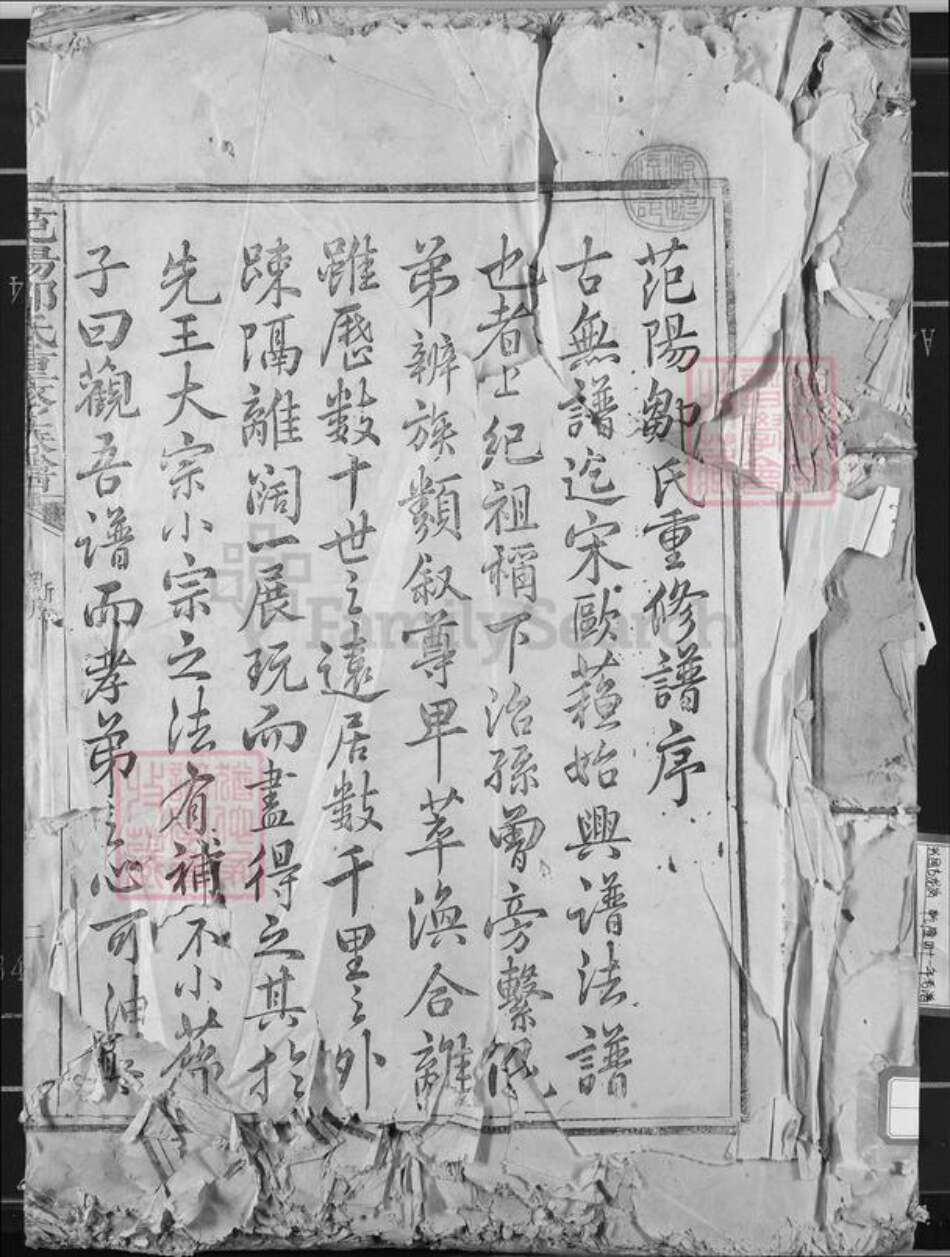 范陽鄒氏重修譜序
古無譜迄宋歐蘓始興譜法譜
也者上紀祖稱下治孫曾旁繫
弟辨族類叙尊卑萃渙合離
雖歷数十世之遠居数千里之外
踈隔離阔一展玩而盡得之其於
先王大宗小宗之法有補不小蘓
子曰觀吾谱而孝弟之心可油
范陽鄒氏重修族譜
新序
FamilySearch